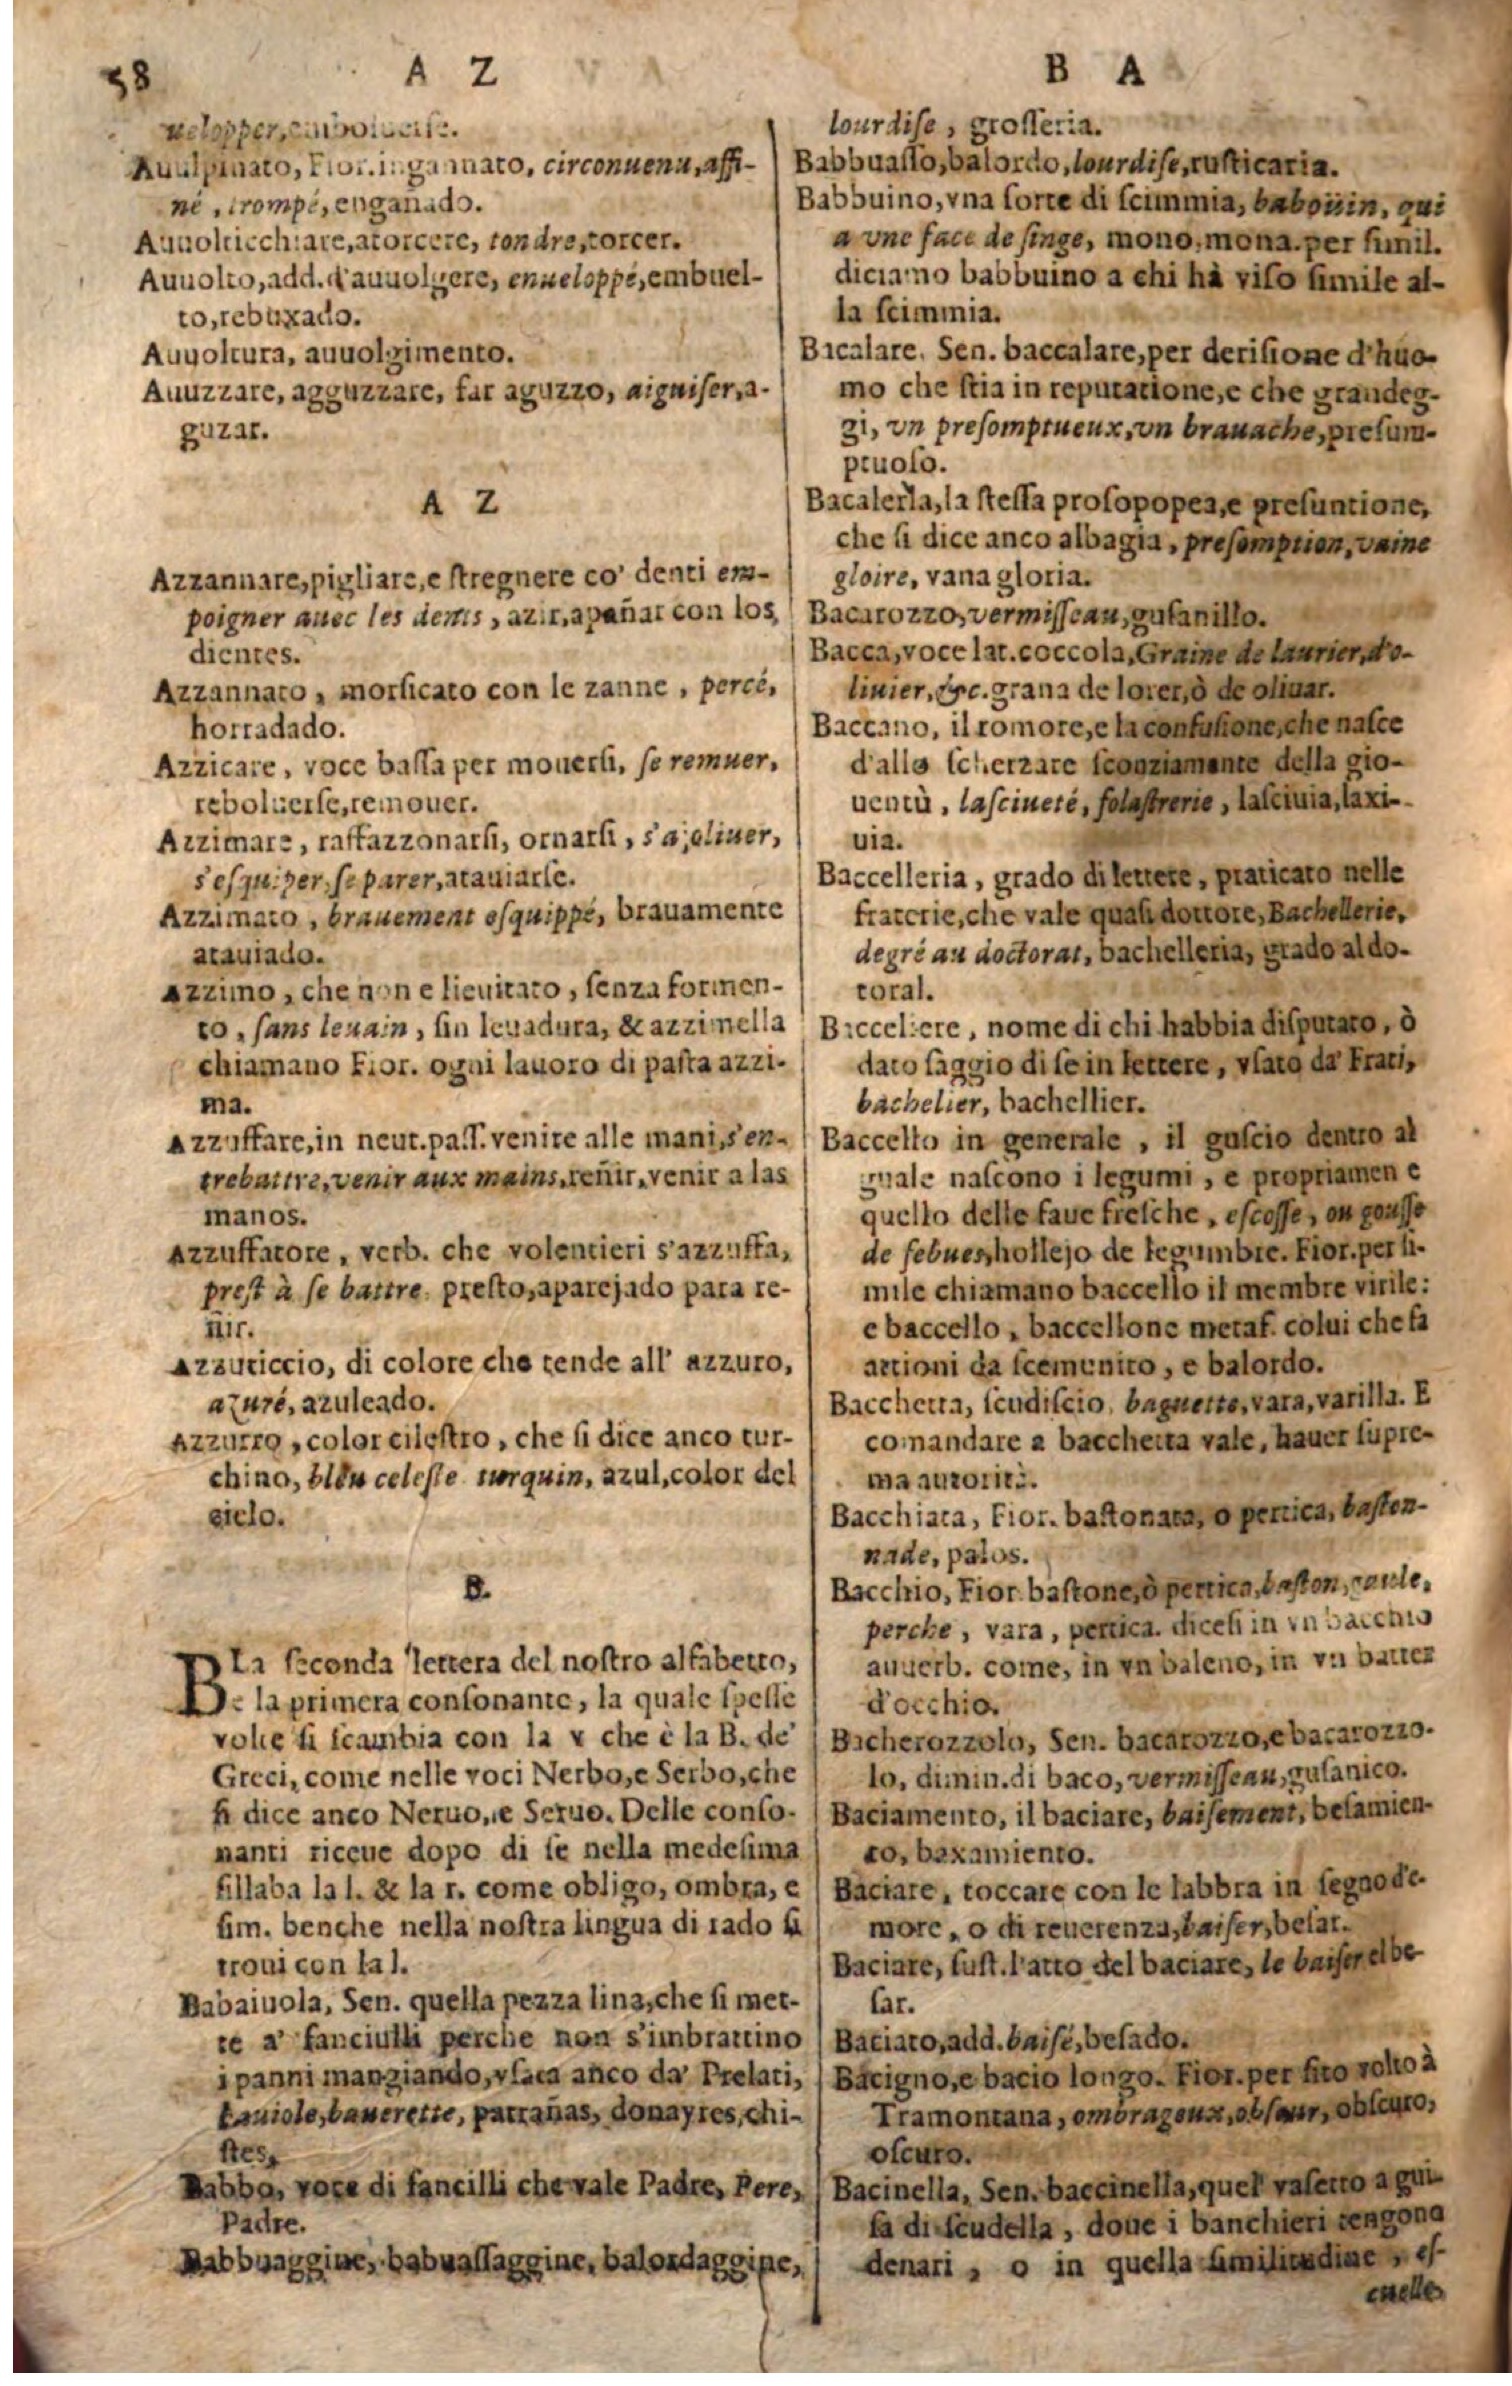 58
A Z
uelopper, emboluerse.
Auulpinato, Fior. ingannato, circonuenu, affi-
né, trompé, engañado.
Auuolticchiare, atorcere, tondre, torcer.
Auuolto, add. d'auuolgere, enueloppé, embuel-
to, rebuxado.
Auuoltura, auuolgimento.
Auuzzare, agguzzare, far aguzzo, aiguiser, a-
guzar.
A Z
Azzannare, pigliare, e stregnere co' denti em-
poigner auec les dents, azir, apañar con los
dientes.
Azzannato, morsicato con le zanne, percé,
horradado.
Azzicare, voce bassa per mouersi, se remuer,
reboluerse, remouer.
Azzimare, raffazzonarsi, ornarsi, s'ajoliuer,
s'esquiper, se parer, atauiarse.
Azzimato, brauement esquippé, brauamente
atauiado.
Azzimo, che non e lieuitato, senza formen-
to, sans leuain, sin leuadura, & azzimella
chiamano Fior. ogni lauoro di pasta azzi-
ma.
Azzuffare, in neut. pass. venire alle mani, s'en-
trebattre, venir aux mains, reñir, venir a las
manos.
Azzuffatore, verb. che volentieri s'azzuffa,
prest à se battre. presto, aparejado para re-
ñir.
Azzuriccio, di colore che tende all' azzuro,
azuré, azuleado.
Azzurro, color cilestro, che si dice anco tur-
chino, bleu celeste turquin, azul, color del
cielo.
B.
B La seconda lettera del nostro alfabetto,
e la primera consonante, la quale spesse
volte si scambia con la v che è la B. de'
Greci, come nelle voci Nerbo, e Serbo, che
si dice anco Neruo, e Seruo. Delle conso-
nanti riceue dopo di se nella medesima
sillaba la l. & la r. come obligo, ombra, e
sim. benche nella nostra lingua di rado si
troui con la l.
Babaiuola, Sen. quella pezza lina, che si met-
te a' fanciulli perche non s'imbrattino
i panni mangiando, vsata anco da' Prelati,
bauiole, bauerette, patrañas, donayres, chi-
stes,
Babbo, voce di fancilli che vale Padre, Pere,
Padre.
Babbuaggine, babuassaggine, balordaggine,
B A
lourdise, grosseria.
Babbuasso, balordo, lourdise, rusticaria.
Babbuino, vna sorte di scimmia, baboüin, qui
a vne face de singe, mono, mona. per simil.
diciamo babbuino a chi hà viso simile al-
la scimmia.
Bacalare. Sen. baccalare, per derisione d'huo-
mo che stia in reputatione, e che grandeg-
gi, vn presomptueux, vn brauache, presum-
ptuoso.
Bacalerìa, la stessa prosopopea, e presuntione,
che si dice anco albagia, presomption, vaine
gloire, vana gloria.
Bacarozzo, vermisseau, gusanillo.
Bacca, voce lat. coccola, Graine de laurier, d'o-
liuier, &c. grana de lorer, ò de oliuar.
Baccano, il romore, e la confusione, che nasce
d'allo scherzare sconziamente della gio-
uentù, lasciueté, folastrerie, lasciuia, laxi-
uia.
Baccelleria, grado di lettere, praticato nelle
fraterie, che vale quasi dottore, Bachellerie,
degré au doctorat, bachelleria, grado al do-
toral.
Bacceliere, nome di chi habbia disputato, ò
dato saggio di se in lettere, vsato da' Frati,
bachelier, bachellier.
Baccello in generale, il guscio dentro al
quale nascono i legumi, e propriamen e
quello delle faue fresche, escosse, ou gousse
de febues, hollejo de legumbre. Fior. per si-
mile chiamano baccello il membre virile:
e baccello, baccellone metaf. colui che fa
attioni da scemunito, e balordo.
Bacchetta, scudiscio, baguette, vara, varilla. E
comandare a bacchetta vale, hauer supre-
ma autorità.
Bacchiata, Fior. bastonata, o pertica, baston-
nade, palos.
Bacchio, Fior. bastone, ò pertica, baston, gaule,
perche, vara, pertica. dicesi in vn bacchio
auuerb. come, in vn baleno, in vn batter
d'occhio.
Bacherozzolo, Sen. bacarozzo, e bacarozzo-
lo, dimin. di baco, vermisseau, gusanico.
Baciamento, il baciare, baisement, besamien-
to, baxamiento.
Baciare, toccare con le labbra in segno d'e-
more, o di reuerenza, baiser, besar.
Baciare, sust. l'atto del baciare, le baiser el be-
sar.
Baciato, add. baisé, besado.
Bacigno, e bacio longo. Fior. per sito volto à
Tramontana, ombrageux, obscur, obscuro,
oscuro.
Bacinella, Sen. baccinella, quel vasetto a gui-
sa di scudella, doue i banchieri tengono
denari, o in quella similitudine, es-
cuelle